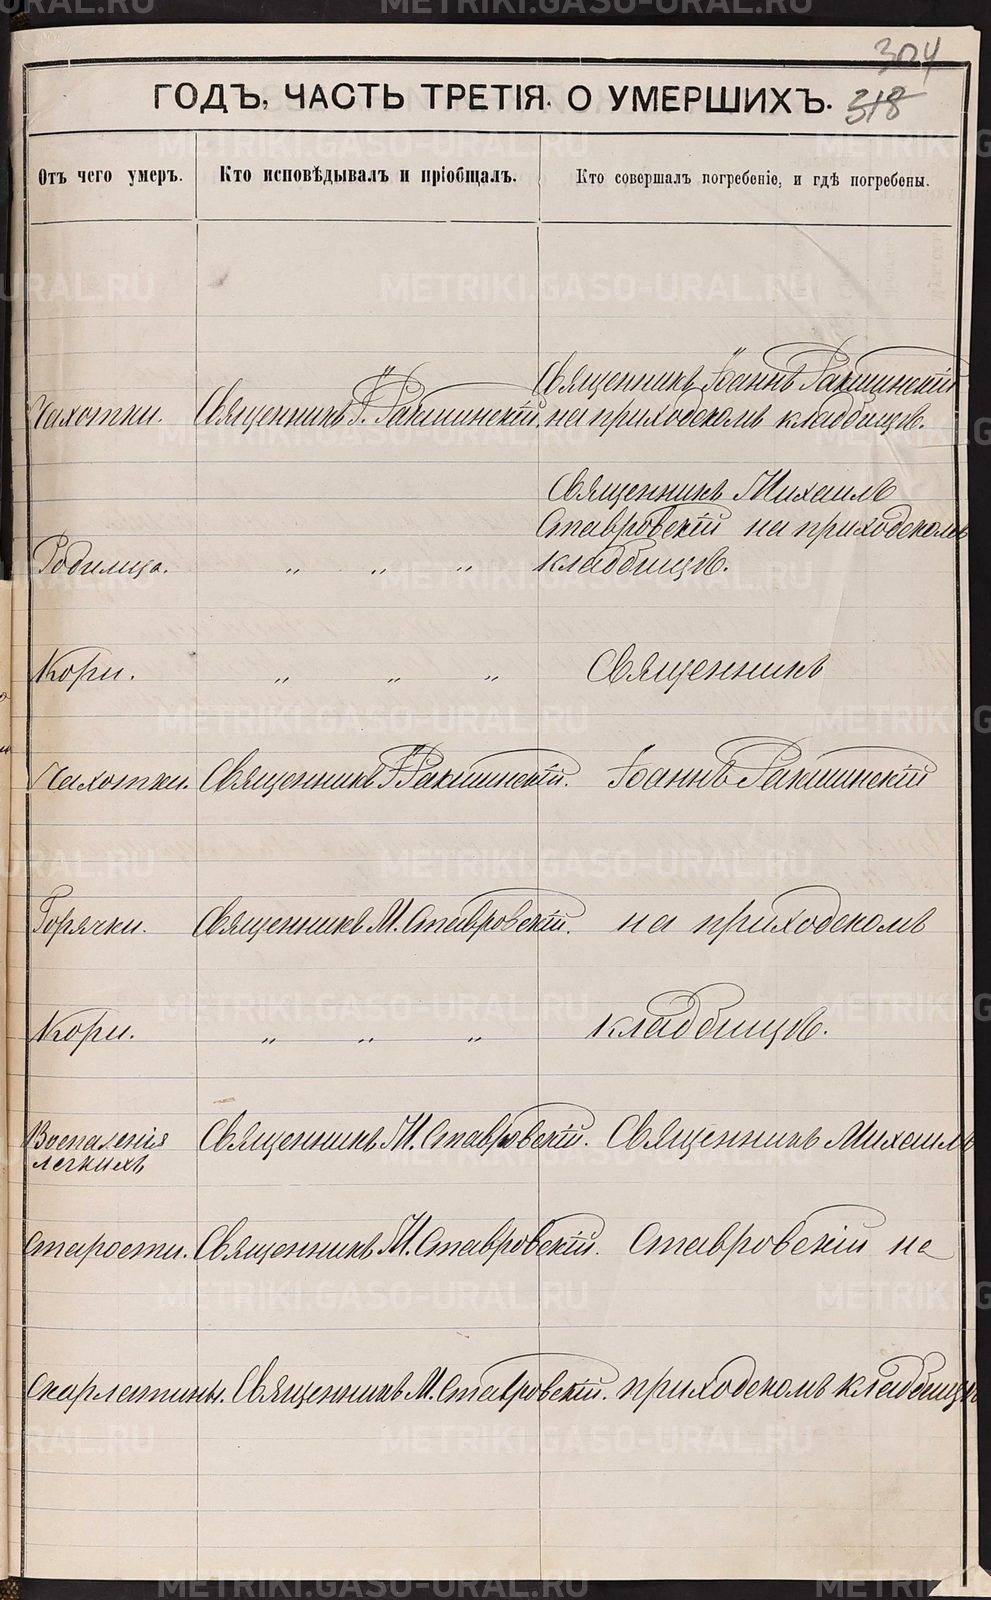 304
ГОДЪ, ЧАСТЬ ТРЕТІЯ. О УМЕРШИХЪ.
318
Отъ чего умеръ.
Кто исповѣдывалъ и пріобщалъ.
Кто совершалъ погребеніе, и гдѣ погребены.
Священникъ Іоаннъ Ракшинскій
Чахотки. Священникъ І. Ракшинскій. на приходскомъ кладбищѣ.
Священникъ Михаилъ
Ставровскій на приходскомъ
Родимца. " " " кладбищѣ.
Кори. " " " Священникъ
Чахотки. Священникъ І. Ракшинскій. Іоаннъ Ракшинскій
Горячки. Священникъ М. Ставровскій. на приходскомъ
Кори. " " " кладбищѣ.
Воспаленія Священникъ М. Ставровскій. Священникъ Михаилъ
легкихъ
Старости. Священникъ М. Ставровскій. Ставровскій на
Скарлатины. Священникъ М. Ставровскій. приходскомъ кладбищѣ
METRIKI.GASO-URAL.RU